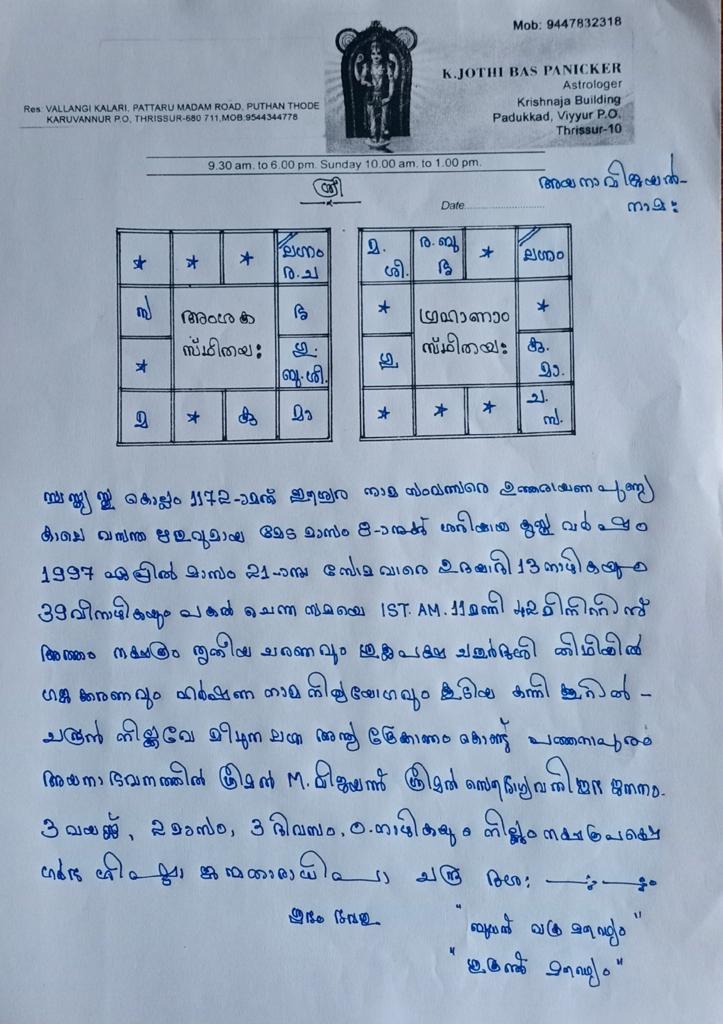 Mob: 9447832318
K.JOTHI BAS PANICKER
Astrologer
Krishnaja Building
Padukkad, Viyyur P.O.
Thrissur-10
Res: VALLANGI KALARI, PATTARU MADAM ROAD, PUTHAN THODE
KARUVANNUR P.O, THRISSUR-680 711,MOB.9544344778
9.30 am. to 6.00 pm. Sunday 10.00 am. to 1.00 pm.
ശ്രീ
Date
നാമ:
* * * ലഗ്നം
ര.ച
* *
അംശക
സ്ഥിതയ:
ഗു.
ബു.ശി.
മ * കു മാ
മ.
ശി.
ര.ബു
* ലഗ്നം
* *
ഗ്രഹാണാം
സ്ഥിതയ:
ഗു കു.
മാ.
* * * ച.
സ.
കൊല്ലം 1172-ാമത് ഈശ്വര നാമ സംവത്സരെ ഉത്തരായണ പുണ്യ
കാലെ വസന്ത ഋതുവുമായ മേട മാസം 8-ാംനുക്ക് ശരിയായ വർഷം
1997 ഏപ്രിൽ മാസം 21-ാംനു സോമ വാരെ ഉദയാദി 13 നാഴികയും
39 വിനാഴികയും പകൽ ചെന്ന സമയെ IST. AM. 11 മണി 42 മിനിറ്റിന്
അത്തം നക്ഷത്രം തൃതീയ ചരണവും ശുക്ലപക്ഷ ചതുർദ്ദശി തിഥിയിൽ
ഗജ കരണവും ഹർഷണ നാമ നിത്യയോഗവും കൂടിയ കന്നി കൂറിൽ -
ചന്ദ്രൻ നില്ക്കവേ മീഥുന ലഗ്ന അന്ത്യ ദ്രേക്കാണം കൊണ്ട് പത്തനാപുരം
ഭവനത്തിൽ ശ്രീമൻ M. വിജയൻ ശ്രീമൻ ജനനം.
3 വയസ്സ്, 2 മാസം, 3 ദിവസം, 0. നാഴികയും നില്ക്കും നക്ഷത്രപക്ഷെ
ഗർഭ ശിഷ്ടം ചന്ദ്ര ദശ:
ശുഭം ഭവതു
"ബുധൻ വക്ര മൗഢ്യം"
"ശുക്രൻ മൗഢ്യം"